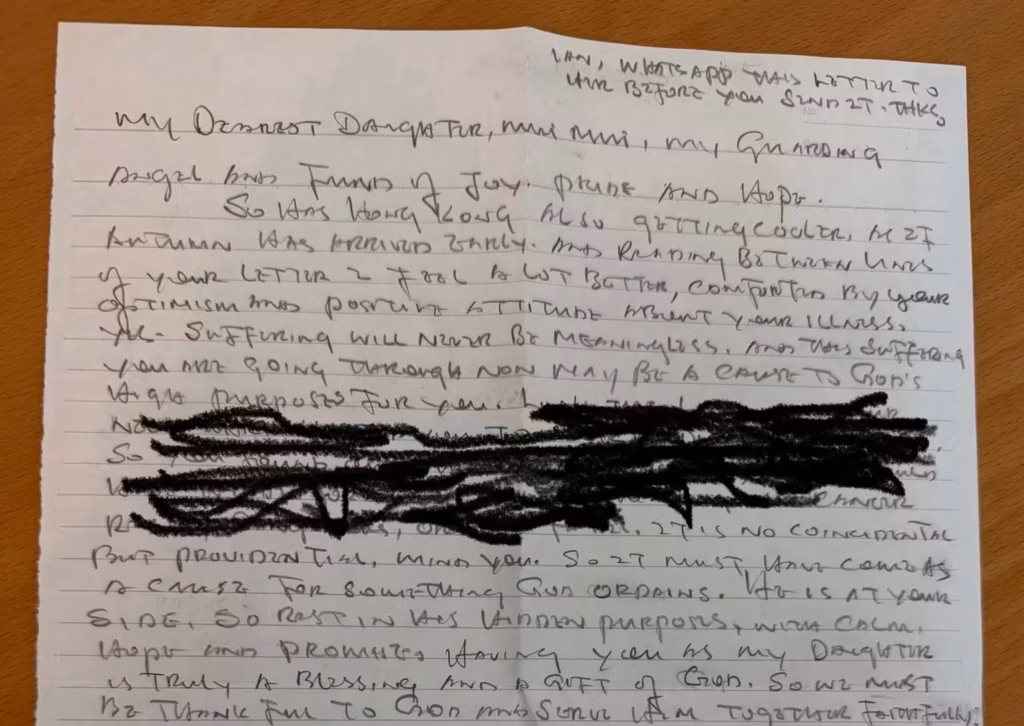 IAN, WHATSAPP THIS LETTER TO
HER BEFORE YOU SEND IT. THKS,
MY DEAREST DAUGHTER, MUI MUI, MY GUARDING
ANGEL AND FUND OF JOY. PRIDE AND HOPE.
SO HAS HONG KONG ALSO GETTING COOLER, AS IF
AUTUMN HAS ARRIVED EARLY. AND READING BETWEEN LINES
OF YOUR LETTER I FEEL A LOT BETTER, COMFORTED BY YOUR
OPTIMISM AND POSITIVE ATTITUDE ABOUT YOUR ILLNESS.
SUFFERING WILL NEVER BE MEANINGLESS. AND THIS SUFFERING
YOU ARE GOING THROUGH NOW MAY BE A CAUSE TO GOD'S
HIGH PURPOSES FOR YOU.
SO
CANCER
IT IS NO COINCIDENTAL
BUT PROVIDENTIAL, MIND YOU. SO IT MUST HAVE COME AS
A CAUSE FOR SOMETHING GOD ORDAINS. HE IS AT YOUR
SIDE, SO REST IN HIS HIDDEN PURPOSES, WITH CALM,
HOPE AND PROMISES. HAVING YOU AS MY DAUGHTER
IS TRULY A BLESSING AND A GIFT OF GOD. SO WE MUST
BE THANKFUL TO GOD AND SERVE HIM TOGETHER FAITHFULLY,